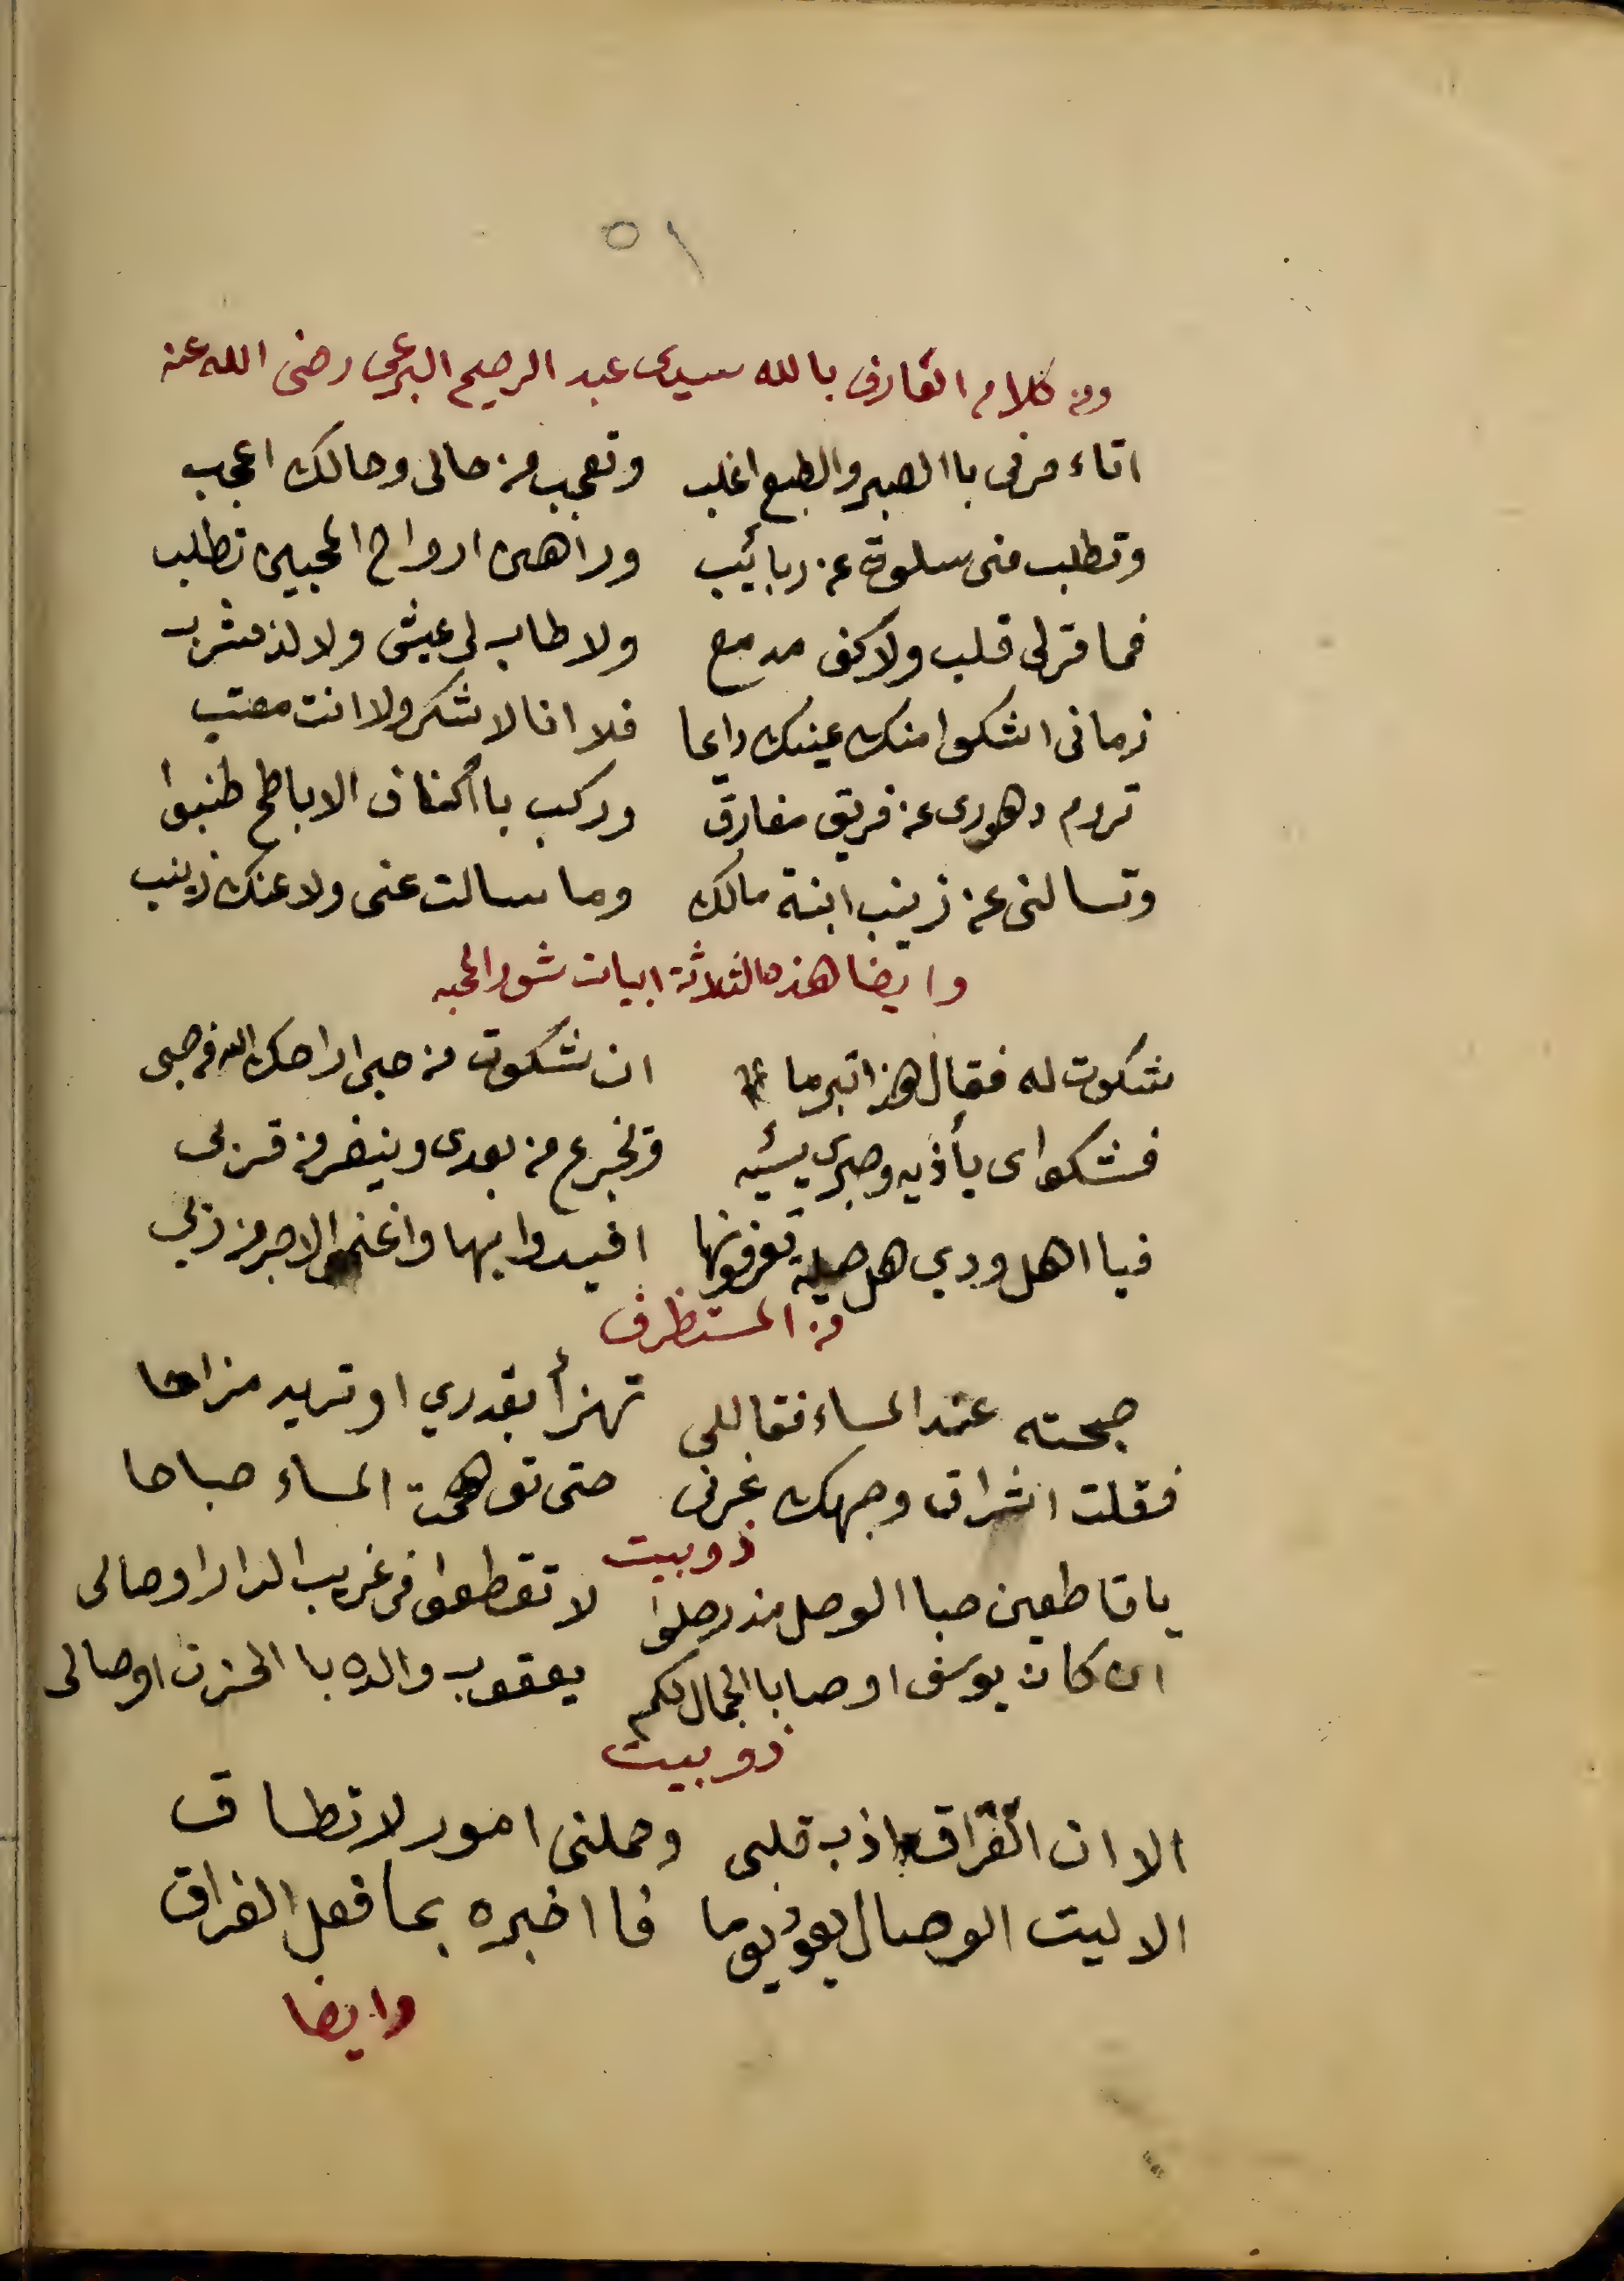 ٥١
ومن كلام العارف بالله سيدى عبد الرحيم البرعي رضى الله عنه
اتاءمرنى باالصبر والطبع اغلب وتعجب من حالى وحالك اعجب
وتطلب منى سلوة عن ربائيب وراهن ارواح المحبين تطلب
فما قر لى قلب ولا كف مدمع ولا طاب لى عيش ولا لذ مشرب
زمانى اشكوا منك عينك دايما فلا انا لاشكر ولا انت معتب
تروم دهورى عن فريق مفارق وركب باأكناف الاباطح طنبوا
وتسالنى عن زينب ابنة مالك وما سالت عنى ولا عنك زينب
وايضا هذه الثلاثة ابيات
شكوت له فقال هذا تبرما ان شكوت من حبى اراحك الله من حبى
فشكواى يأذيه وصبرى يسئيه وتجزع من بعدى وينفر من قربى
فيا اهل ودي هل حيلة تعرفونها افيدوا بها واغنموا الاجر من ربي
من المستظرف
صبحته عند المساء فقاللي تهزأ بقدري او تريد مزاحا
فقلت اشراق وجهك غرنى حتى توهمت المساء صباحا
ذو بيت
يا قاطعين حبا الوصل منذ رحلوا لا تقطعوا فى غريب الدار اوصالى
ان كان يوسف اوصا باالجمال لكم يعقوب والده باالحزن اوصالى
ذو بيت
الا ان الفراق اذب قلبى وحملنى امور لا تطاق
الا ليت الوصال يعود يوما فااخبره بما فعل الفراق
وايضا